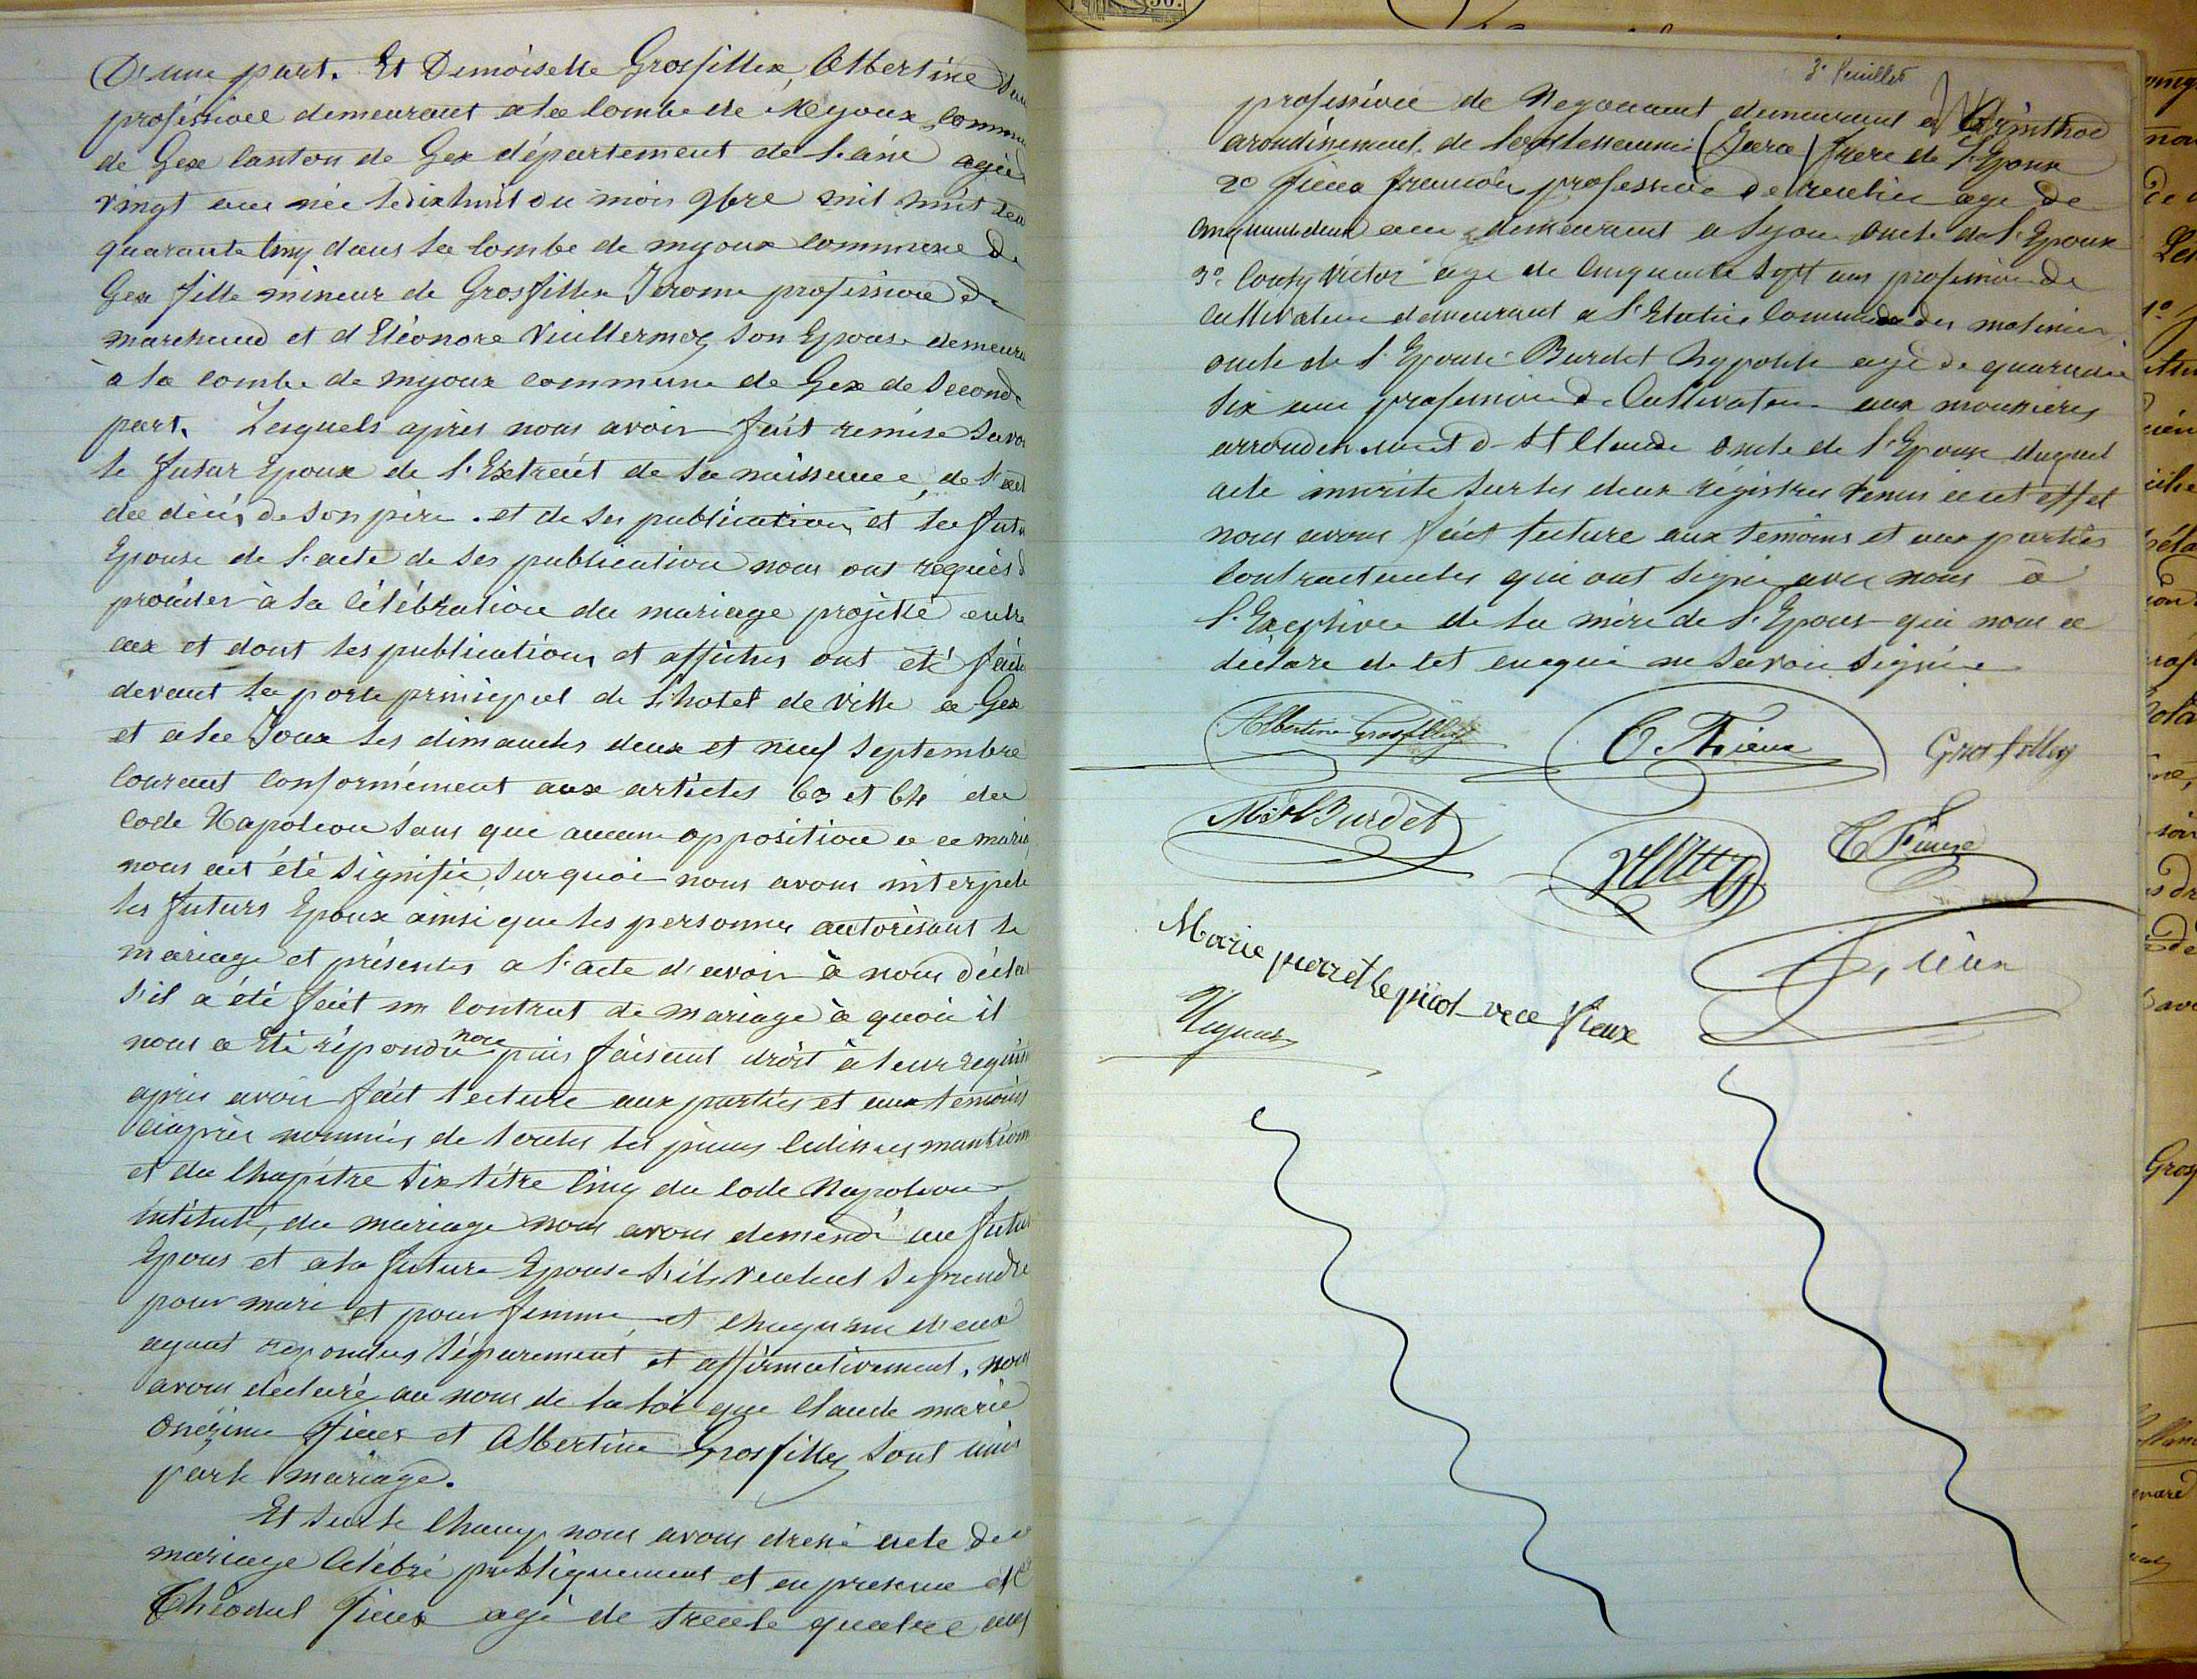 D'une part. Et Demoiselle Grosfillex Albertine San
profession demeurant a la Combe de Mijoux Commu
de Gex Canton de Gex département de l'ain agée
vingt ans née le dix huit du mois 9bre mil huit cen
quarante Cinq dans la Combe de mijoux Commune De
Gex fille mineur de Grosfillex Jerome profession de
marchand et d'Eléonore Vuillermoz son Epouse demeura
à la Combe de mijoux commune de Gex de Seconde
part. Lesquels après nous avoir fait remise Savo
le futur Epoux de l'Extrait de sa naissance, de l'act
de décès de son père. et de ses publication et la futu
Epouse de l'acte de ses publication nous ont requis d
procéder à la Célébration du mariage projetté entre
eux et dont les publications et affiches ont été faite
devant la porte principal de l'hotel de Ville a Gex
et a la Joux les dimanches deux et neuf Septembre
Courant Conformément aux articles 63 et 64 du
Code Napoleon Sans que aucune opposition a ce maria
nous ait été Signifié, Sur quoi nous avons interpele
les futurs Epoux ainsi que les personnes autorisant le
mariage et présentes a l'acte d'avoir à nous décla
s'il a été fait un Contrat de mariage à quoi il
nous a Eté répondu non puis faisant droit à leur requis
après avoir fait lecture aux parties et aux témoins
Ciaprès nommés de toutes les pièces Cidessus mention
et du Chapitre Six titre Cinq du Code Napoleon
intitulé, du mariage nous avons demandé au futur
Epoux et a la future Epouse S'ils veulent Se prendre
pour mari et pour femme, et Chaqu'un d'eux
ayant repondus Séparement et affirmativement, nous
avons déclaré au nom de la loi que Claude marie
Onezime fieux et Albertine Grosfillex Sont unis
par le mariage.
Et Sur le Champ nous avons dressé acte de
mariage Célébré publiquement et en presence de
Théodul fieux agé de trente quatre ans
3e feuillet
profession de Negociant demeurant a Arinthod
arondissement de (Jura) frere de l'Epoux
2° fieux francois profession de rentier agé de
Cinquante deux ans demeurant a Lyon oncle de l'Epoux
3° Victor agé de Cinquante Sept ans profession de
Cultivateur demeurant a Commune des
oncle de l'Epouse Burdet hypolite agé de quarante
Six ans profession de Cultivateur aux moussieres
arrondissement de St Claude oncle de l'Epouse duquel
acte inscrite Sur les deux régistres tenus a cet effet
nous avons fait lecture aux temoins et aux parties
Contractantes qui ont Signé avec nous à
l'Exception de la mère de l'Epouse qui nous a
déclare de cet enquis ne Savoir Signée
Albertine Grosfillex
Fieux
Grosfillex
Burdet
Fieux
Marie pierrette picot vve fieux
Fieux